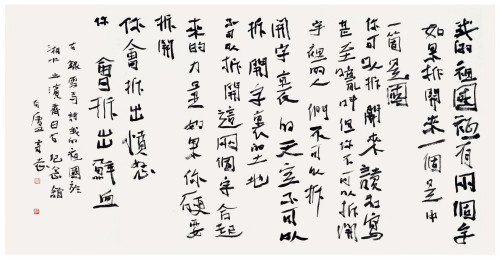 我的祖國祗有兩個字
如果拆開來一個是祖
一個是國
你可以拆開來讀和寫
甚至嚎叫但你不可以拆開
字裏的人們不可以拆
開字裏的天空不可以
拆開字裏的土地
不可以拆開這兩個字合起
來的力量如果你硬要
拆開
你會拆出憤怒
你會拆出鮮血
詩我的祖國於
湘水之濱齊白石紀念館